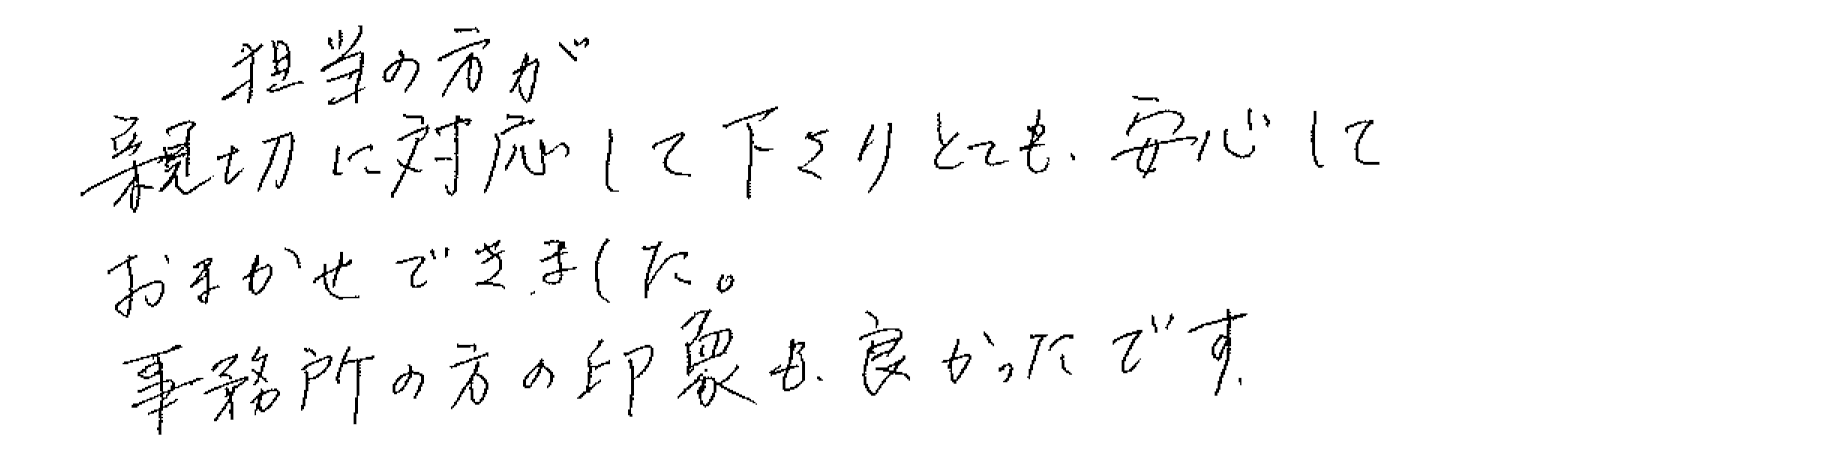 担当の方が
親切に対応して下さりとても、安心して
おまかせできました。
事務所の方の印象も、良かったです。